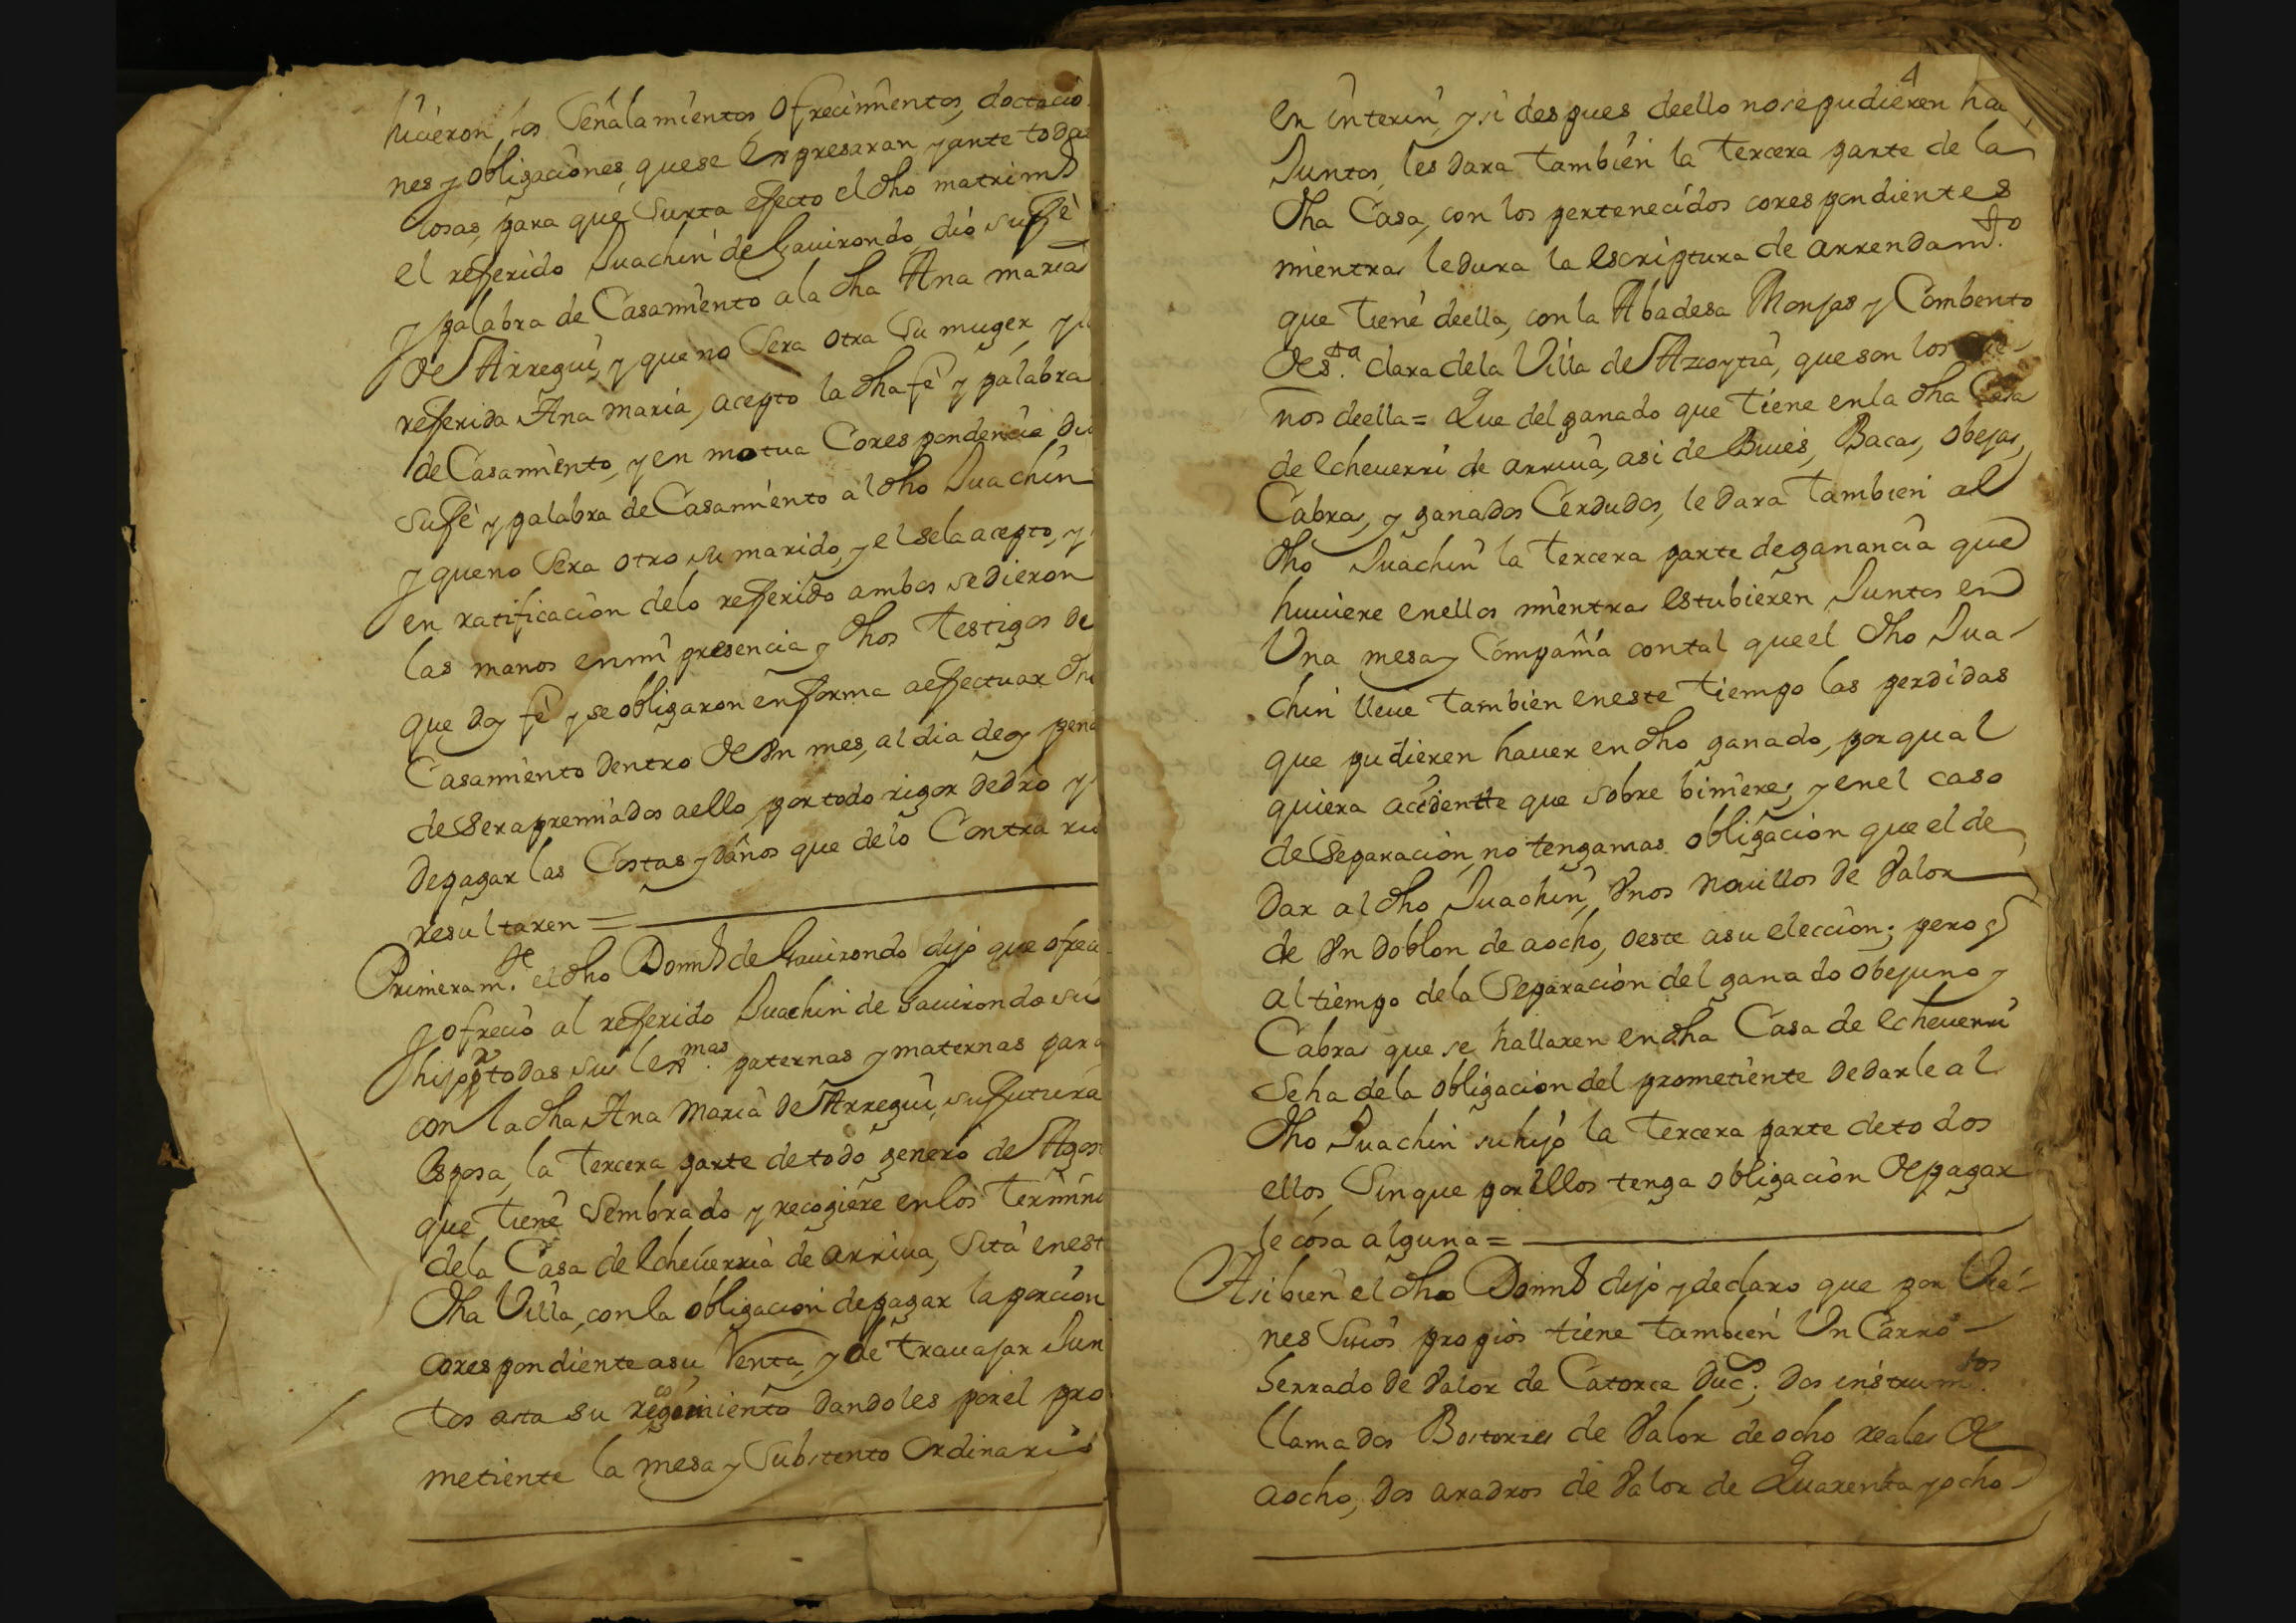 hicieron, los Señalamientos, Ofrecimientos, doctacio
nes y Obligaciones, quese Expresaran, y ante todas
cosas, para que Surta efecto el dho matrim.º
el referido Juachin de Gauirondo, dió su fè
y palabra de Casamiento a la dha Ana maria
de Arregui, y que no Sera otra Su muger, y la
referida Ana maria, acepto la dha fè y palabra
de Casamiento, y en motua Corespondencia dio
su fè y palabra de Casamiento al dho Juachin
y que no Sera otro su marido, y el se la acepto, y
en ratificacion delo referido ambos se dieron
las manos en mi presencia y dhos Testigos de
que doy fè y se obligaron en forma a efectuar dho
Casamiento dentro de Un mes, al dia de oy pena
de Ser apremiados a ello, por todo rigor de dro y
de pagar las Costas y daños que delo Contra rio
resultaren =
Primeram.te el dho Dom.º de Gauirondo dijo que ofrecia
y ofrecio al referido Juachin de Gauirondo su
hijo pr todas sus lex.mas paternas y maternas para
con la dha Ana Maria de Arregui, su futura
Esposa, la Tercera parte de todo genero de Agos
que tiene Sembrado y recogiere en los Termino
de la Casa de Echeuerria de arriua, Sita en est
dha Villa, con la obligacion de pagar la porcion
corespondiente a su Venta, y de trauajar Jun
tos asta su recogimiento dandoles por el pro
metiente la mesa y Substento Ordinario
4
en interin, y si despues de ello no se pudieren ha
Juntos, les dara también la Tercera parte de la
dha Casa, con los pertenecidos corespondientes
mientras le dura la Escriptura de arrendam.to
que tiene de ella, con la Abadesa Monjas y Combento
de S.ta clara de la Villa de Azcoytia, que son los
nos de ella = Que del ganado que tiene en la dha Casa
de Echeuerri de arriua, asi de Bueis, Bacas, Obejas,
Cabras, y ganados Cerdudos, le dara Tambien al
dho Juachin la Tercera parte de ganancia que
huuiere en ellos mientras Estubieren Juntos en
Una mesa y Compañia con tal que el dho Jua-
chin lleue tambien en este tiempo las perdidas
que pudieren hauer en dho ganado, por qual
quiera accidentte que sobre biniere; y en el caso
de Separacion, no tenga mas obligacion que el de
Dar al dho Juachin, Unos nouillos de Valor
de Un doblon de a ocho, oeste a su eleccion; pero q
al tiempo de la Separacion del ganado obejuno y
Cabras que se hallaren en dha Casa de Echeuerri
Se ha de la obligacion del prometiente de darle al
dho Juachin su hijo la Tercera parte de todos
ellos, Sin que por Ellos tenga obligacion de pagar
le cosa alguna =
Asi bien el dho Dom.º dijo y declaro que por Vie-
nes Suios propios tiene tambien Un Carro
herrado de Valor de Catorce duc.s; dos instrum.tos
llamados Bostorzes de Valor de ocho reales de
aocho, dos aradros de Valor de Quarenta y ocho